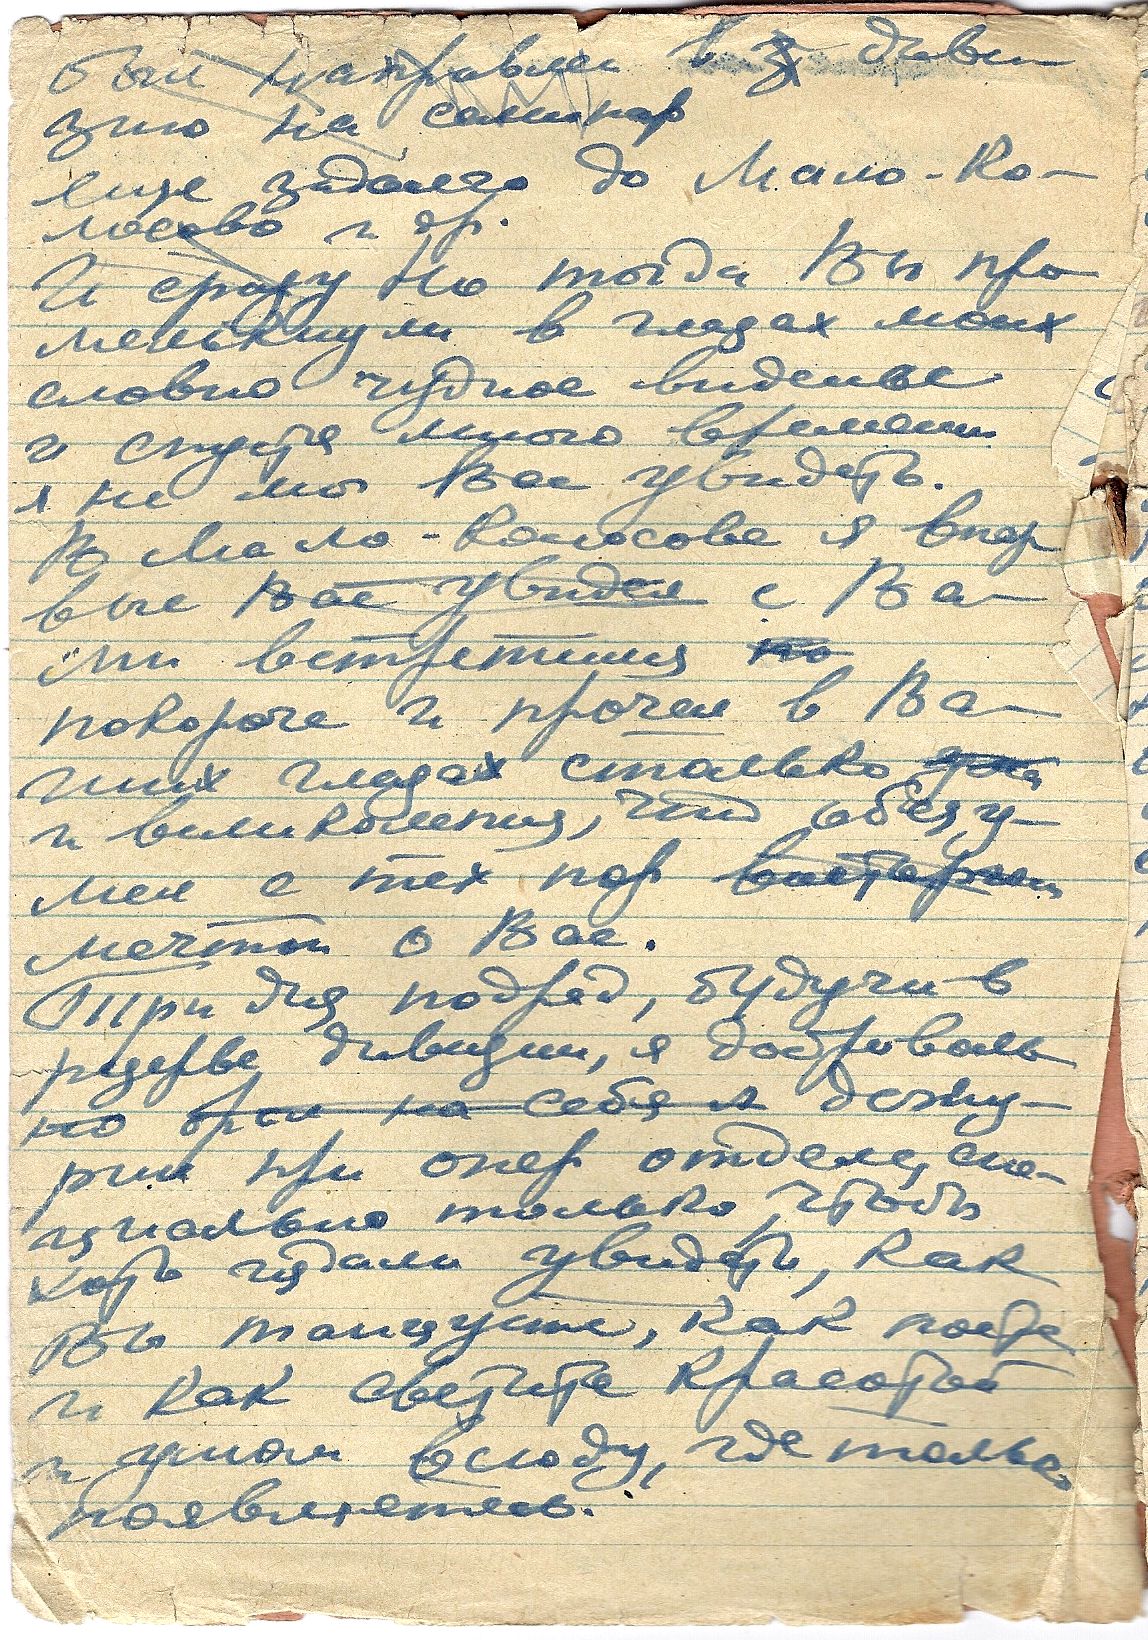 был направлен в диви-
зию на семинар
еще задолго до Мало-Ко-
лосово и др.
И сразу но тогда Вы про
мелькнули в глазах моих
словно чудное виденье
и спустя много времени
я не мог Вас увидеть.
В Мало-Колосове я впер
вые Вас увидел с Ва-
ми встретился по
покороче и прочел в Ва-
ших глазах столько
и великолепия, что обезу-
мел с тех пор
мечтой о Вас.
Три дня подряд, будучи в
резерве дивизии, я доброволь
но брал на себя и дежу-
рил при опер отделе, спе-
циально только, чтобы
хоть издали увидеть, как
Вы танцуете, как поете
и как светите красотой
и умом всюду, где только
появляетесь.